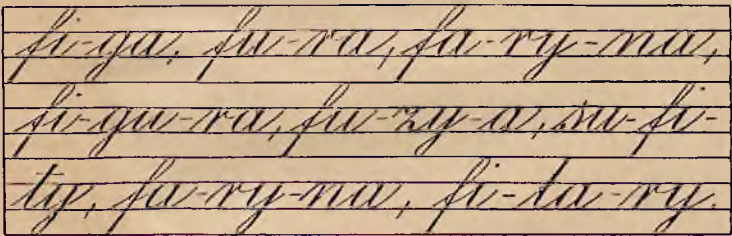 fi-ga, fu-ra, fa-ry-na,
fi-gu-ra, fu-zy-a, su-fi-
ty, fa-ry-na, fi-la-ry.